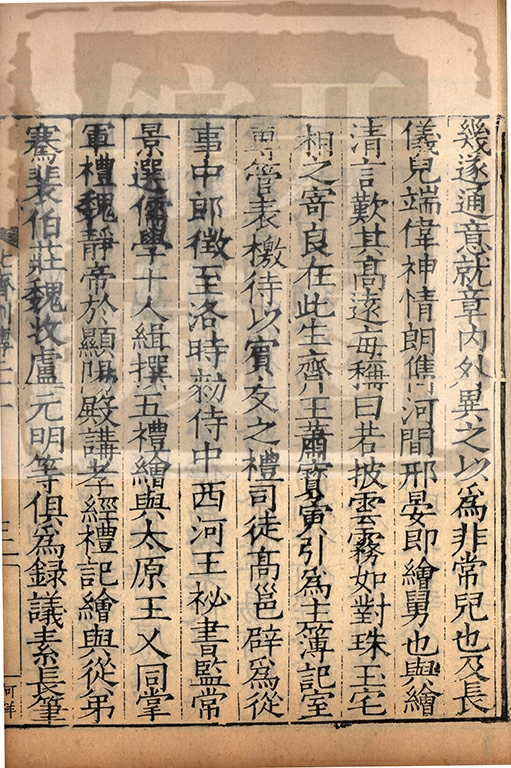 幾遂通意就章內外異之以爲非常兒也及長
儀兒端偉神情朗儁河間邢晏即繪舅也與繪
清言歎其高遠每稱曰若披雲霧如對珠玉宅
相之寄良在此生齊王蕭寶寅引爲主簿記室
專管表檄待以賓友之禮司徒高邕辟爲從
事中郎徵至洛時勑侍中西河王祕書監常
景選儒學十人緝撰五禮繪與太原王乂同掌
軍禮魏靜帝於顯陽殿講孝經禮記繪與從弟
騫裴伯莊魏收盧元明等俱爲録議素長筆